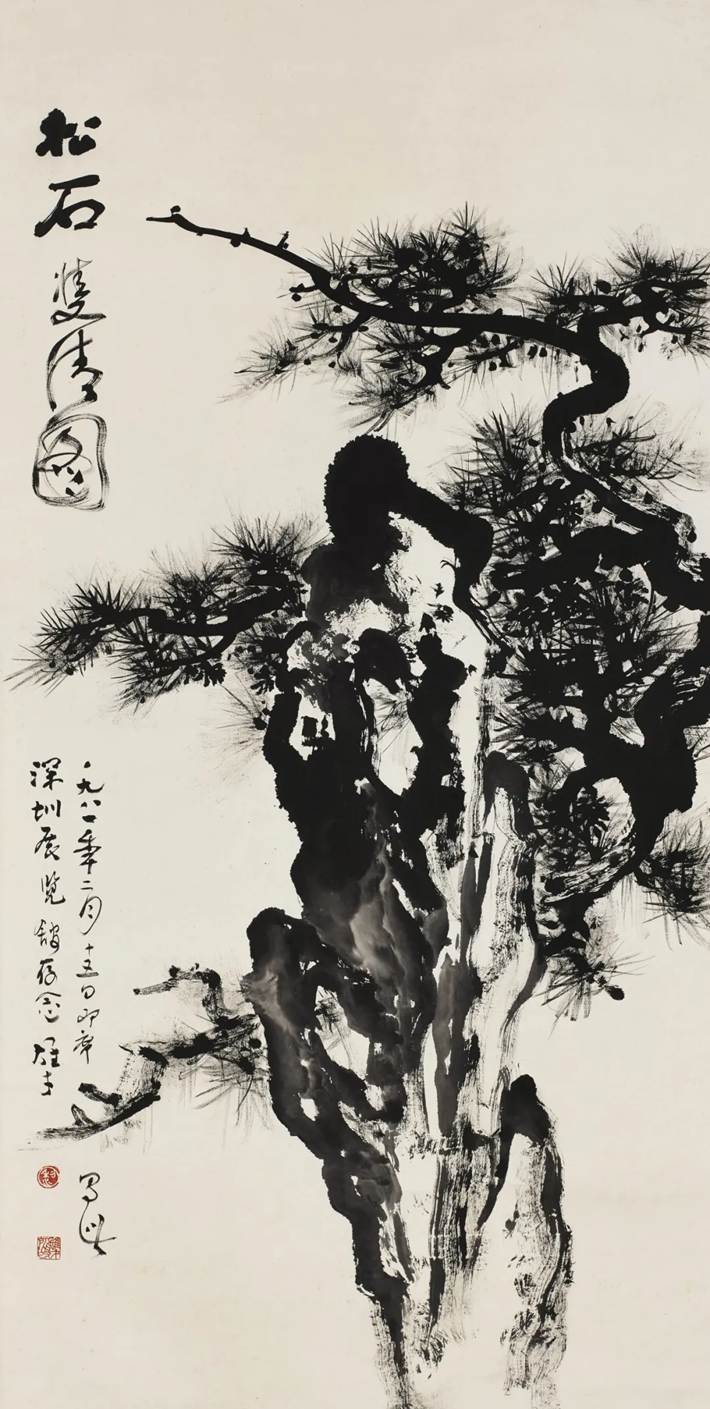 松石雙清图
一九八一年二月十五日即席写
深圳展览舘存念 雄才